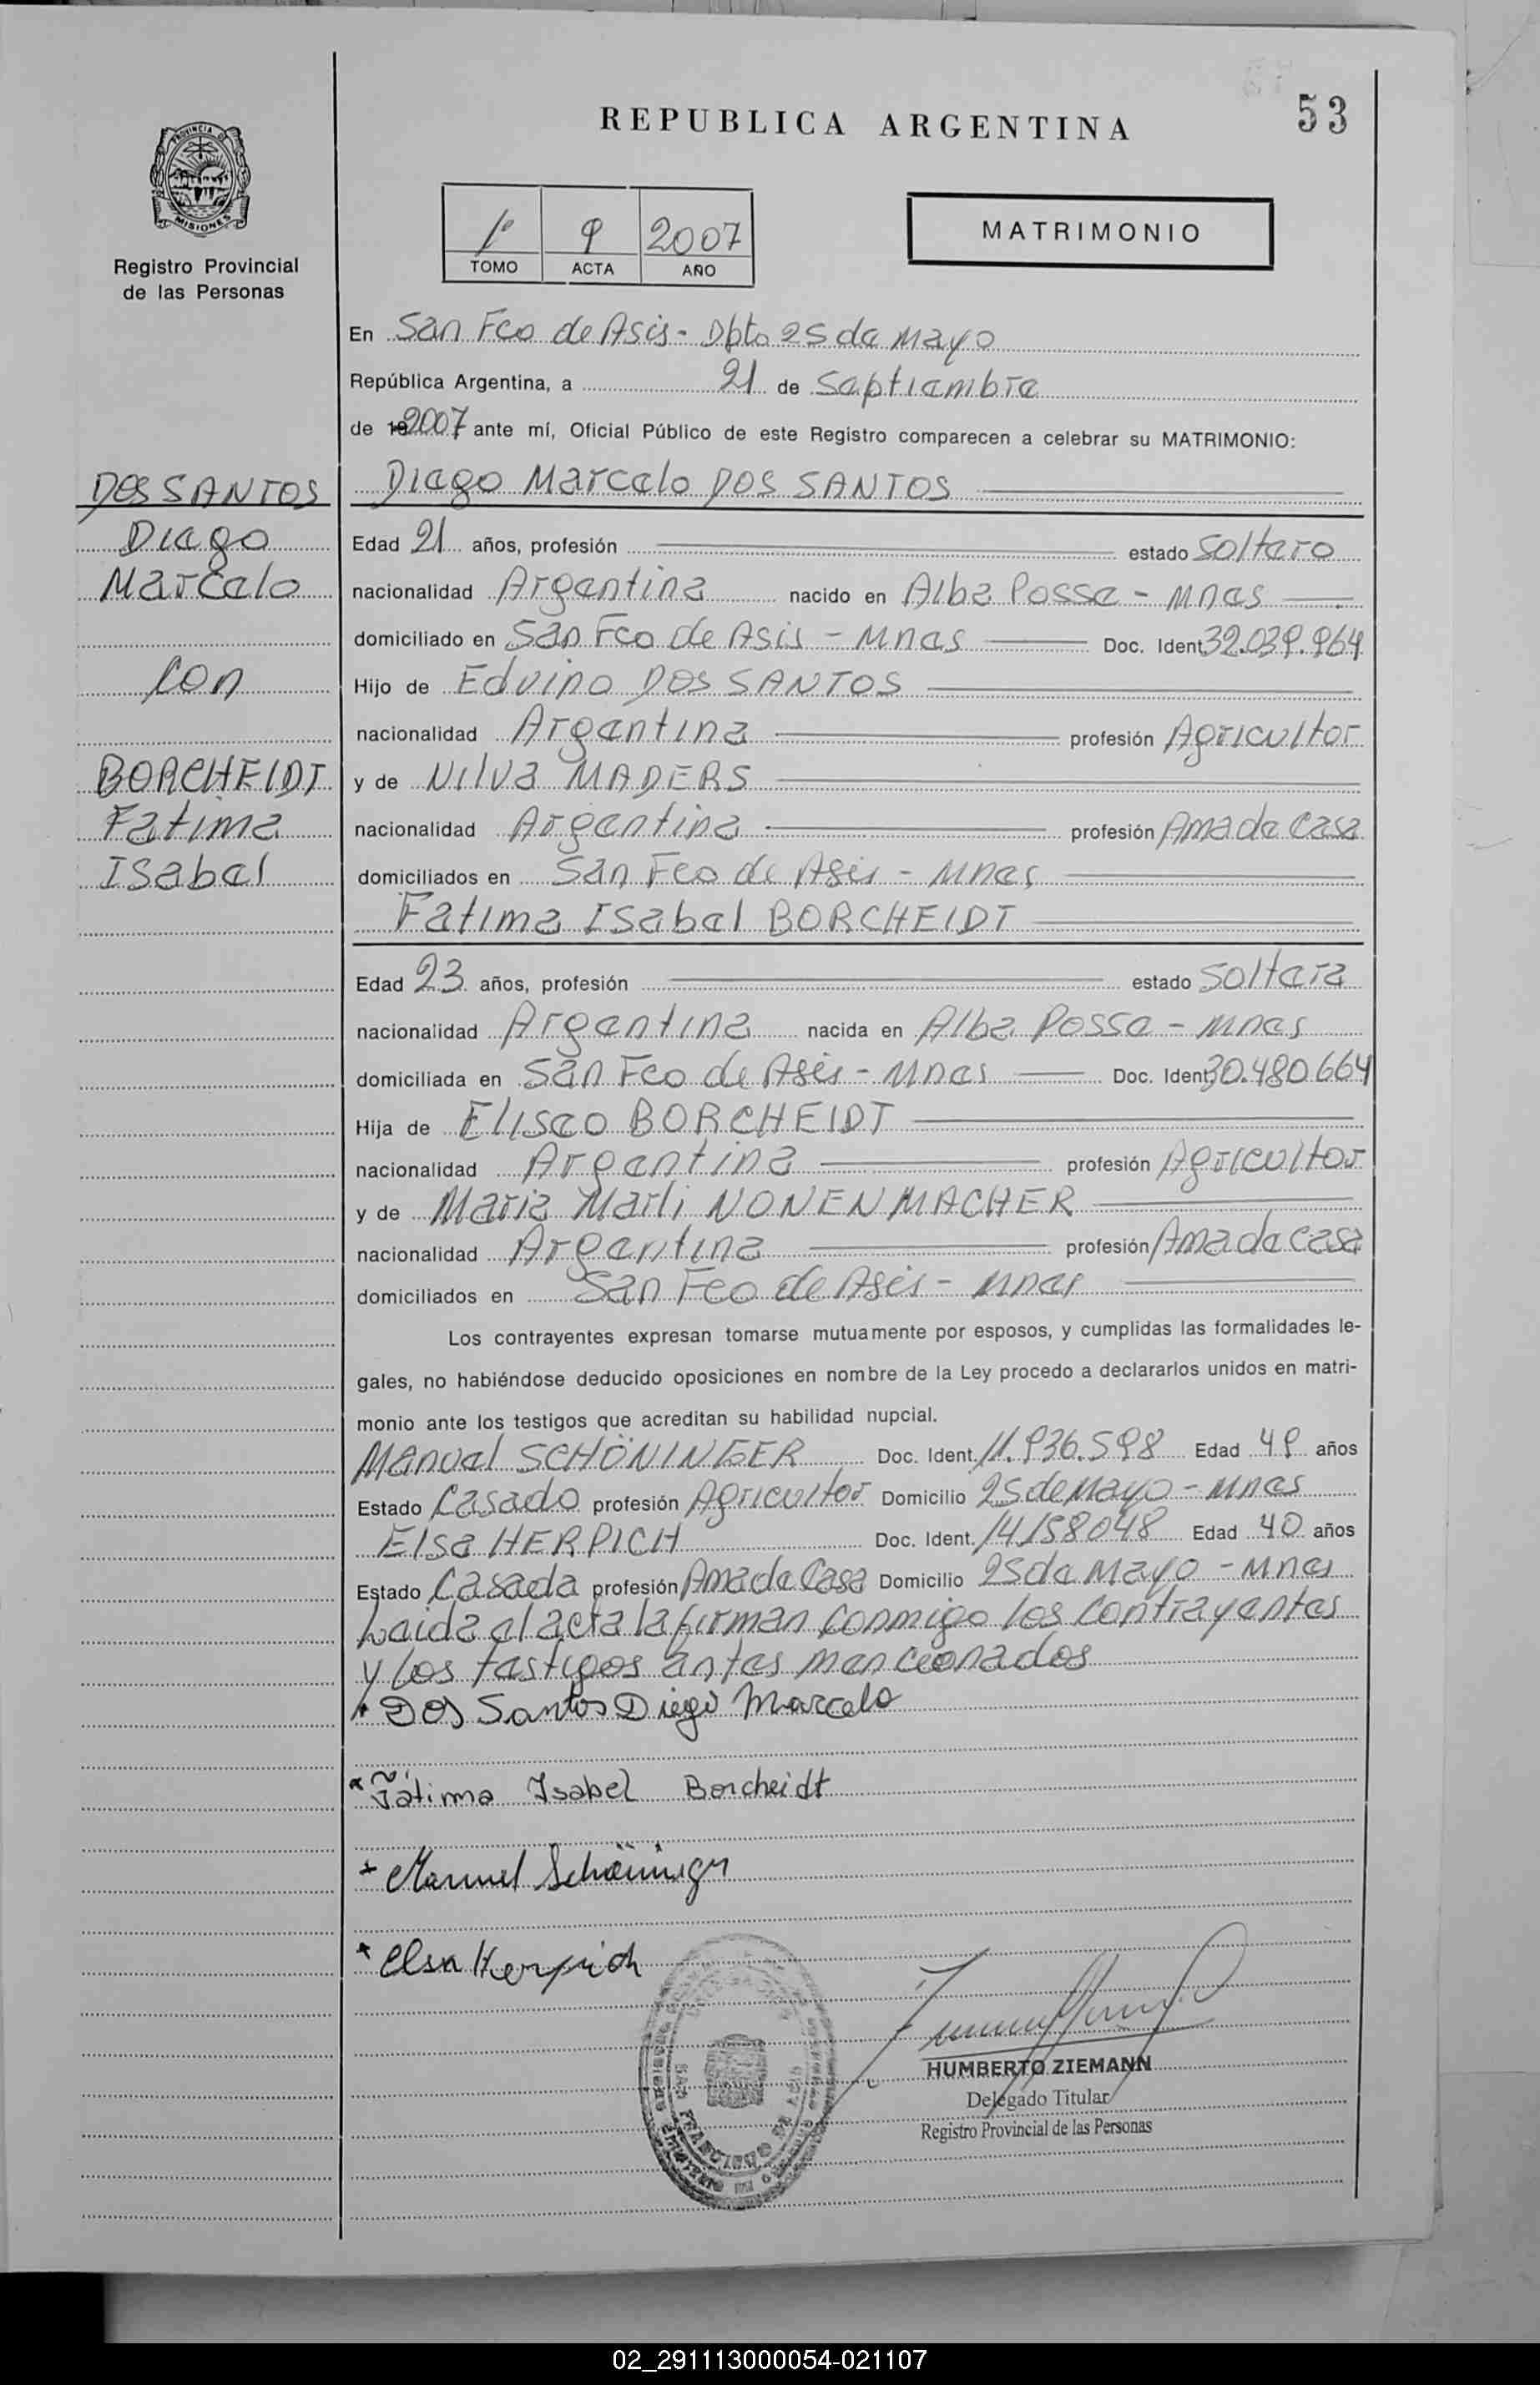 REPUBLICA ARGENTINA
53
PROVINCIA DE
MISIONES
Registro Provincial
de las Personas
1º 9 2007
TOMO ACTA AÑO
MATRIMONIO
En San Fco de Asis - Dpto 25 de Mayo
República Argentina, a 21 de Septiembre
de 19 2007 ante mí, Oficial Público de este Registro comparecen a celebrar su MATRIMONIO:
DOS SANTOS
Diego
Marcelo
Con
BORCHEIDT
Fatima
Isabel
Diego Marcelo DOS SANTOS
Edad 21 años, profesión estado Soltero
nacionalidad Argentina nacido en Alba Posse - Mnes
domiciliado en San Fco de Asis - Mnes Doc. Ident 32.039.964
Hijo de Edvino DOS SANTOS
nacionalidad Argentina profesión Agricultor
y de Nilva MADERS
nacionalidad Argentina profesión Ama de Casa
domiciliados en San Fco de Asis - Mnes
Fatima Isabel BORCHEIDT
Edad 23 años, profesión estado Soltera
nacionalidad Argentina nacida en Alba Posse - Mnes
domiciliada en San Fco de Asis - Mnes Doc. Ident. 30.480.664
Hija de Eliseo BORCHEIDT
nacionalidad Argentina profesión Agricultor
y de Maria Marli NONENMACHER
nacionalidad Argentina profesión Ama de Casa
domiciliados en San Fco de Asis - Mnes
Los contrayentes expresan tomarse mutuamente por esposos, y cumplidas las formalidades le-
gales, no habiéndose deducido oposiciones en nombre de la Ley procedo a declararlos unidos en matri-
monio ante los testigos que acreditan su habilidad nupcial.
Manuel SCHÖNINGER Doc. Ident. 11.936.598 Edad 49 años
Estado Casado profesión Agricultor Domicilio 25 de Mayo - Mnes
Elsa HERPICH Doc. Ident. 14158048 Edad 40 años
Estado Casada profesión Ama de Casa Domicilio 25 de Mayo - Mnes
Leida el acta la firman conmigo los contrayentes
y los testigos antes mencionados
Dos Santos Diego Marcelo
Fátima Isabel Borcheidt
Manuel Schöninger
Elsa Herpich
SAN FRANCISCO DE ASIS
HUMBERTO ZIEMANN
Delegado Titular
Registro Provincial de las Personas
02_291113000054-021107